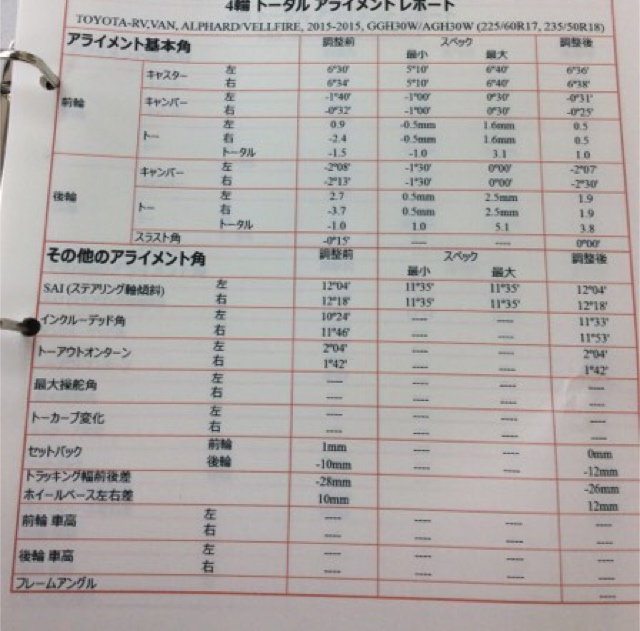 4輪 トータル アライメント レポート
TOYOTA-RV,VAN, ALPHARD/VELLFIRE, 2015-2015, GGH30W/AGH30W (225/60R17, 235/50R18)
アライメント基本角 調整前 スペック 調整後
最小 最大
前輪 キャスター 左 6°30' 5°10' 6°40' 6°36'
右 6°34' 5°10' 6°40' 6°38'
キャンバー 左 -1°40' -1°00' 0°30' -0°31'
右 -0°32' -1°00' 0°30' -0°25'
トー 左 0.9 -0.5mm 1.6mm 0.5
右 -2.4 -0.5mm 1.6mm 0.5
トータル -1.5 -1.0 3.1 1.0
後輪 キャンバー 左 -2°08' -1°30' 0°00' -2°07'
右 -2°13' -1°30' 0°00' -2°30'
トー 左 2.7 0.5mm 2.5mm 1.9
右 -3.7 0.5mm 2.5mm 1.9
トータル -1.0 1.0 5.1 3.8
スラスト角 -0°15' ---- ---- 0°00'
その他のアライメント角 調整前 スペック 調整後
最小 最大
SAI (ステアリング輪傾斜) 左 12°04' 11°35' 11°35' 12°04'
右 12°18' 11°35' 11°35' 12°18'
インクルーデッド角 左 10°24' ---- ---- 11°33'
右 11°46' ---- ---- 11°53'
トーアウトオンターン 左 2°04' ---- ---- 2°04'
右 1°42' ---- ---- 1°42'
最大操舵角 左 ---- ---- ---- ----
右 ---- ---- ---- ----
トーカーブ変化 左 ---- ---- ---- ----
右 ---- ---- ---- ----
セットバック 前輪 1mm ---- ---- 0mm
後輪 -10mm ---- ---- -12mm
トラッキング幅前後差 -28mm -26mm
ホイールベース左右差 10mm 12mm
前輪 車高 左 ---- ---- ---- ----
右 ---- ---- ---- ----
後輪 車高 左 ---- ---- ---- ----
右 ---- ---- ---- ----
フレームアングル ---- ----